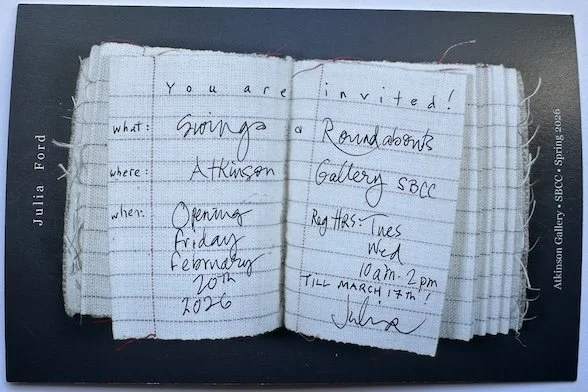 Julia Ford
You are invited!
what: Swings a Roundabouts
where: Atkinson Gallery SBCC
when: Opening
Friday
February
20th
2026
Reg HRS: Tues
Wed
10am - 2pm
TILL MARCH 17th!
Julia
Atkinson Gallery • SBCC • Spring 2026